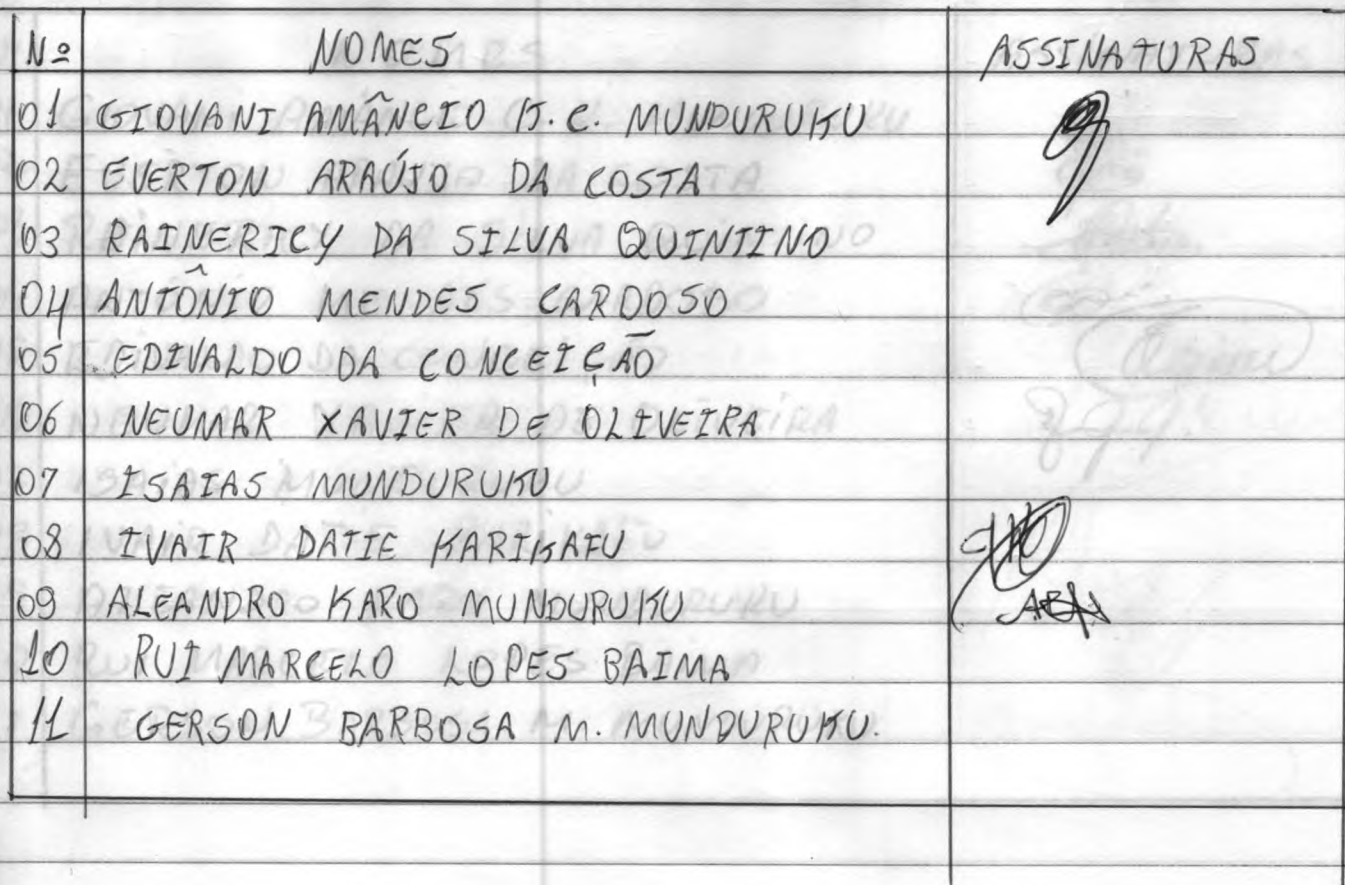 Nº NOMES ASSINATURAS
01 GIOVANI AMÂNCIO K. C. MUNDURUKU
02 EVERTON ARAÚJO DA COSTA
03 RAINERICY DA SILVA QUINTINO
04 ANTÔNIO MENDES CARDOSO
05 EDIVALDO DA CONCEIÇÃO
06 NEUMAR XAVIER DE OLIVEIRA
07 ISAIAS MUNDURUKU
08 IVAIR DATIE KARIKAFU
09 ALEANDRO KARO MUNDURUKU
10 RUI MARCELO LOPES BAIMA
11 GERSON BARBOSA M. MUNDURUKU.